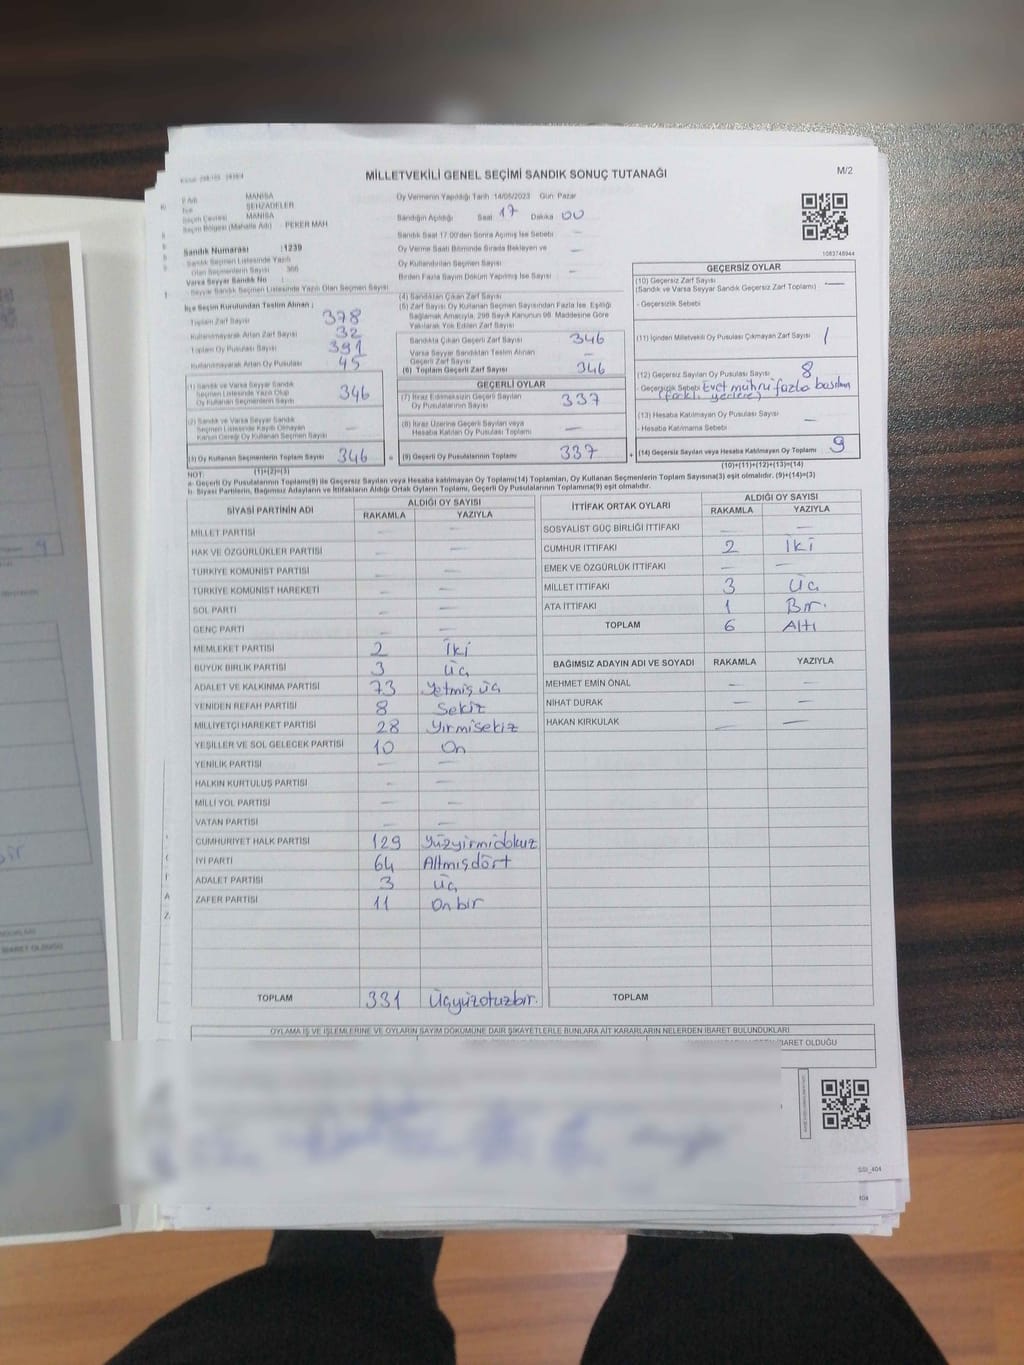 MİLLETVEKİLİ GENEL SEÇİMİ SANDIK SONUÇ TUTANAĞI
M/2
MANİSA
ŞEHZADELER
MANİSA
Seçim Bölgesi (Mahalle Adı) : PEKER MAH
Sandık Numarası :1239
Sandık Seçmen Listesinde Yazılı
Olan Seçmenlerin Sayısı : 366
Varsa Seyyar Sandık No :
Seyyar Sandık Seçmen Listesinde Yazılı Olan Seçmen Sayısı
Oy Vermenin Yapıldığı Tarih :14/05/2023 Gün: Pazar
Sandığın Açıldığı Saat 17 Dakika 00
Sandık Saat 17.00'den Sonra Açılmış İse Sebebi —
Oy Verme Saati Bitiminde Sırada Bekleyen ve
Oy Kullandırılan Seçmen Sayısı —
Birden Fazla Sayım Döküm Yapılmış İse Sayısı : —
1083748944
İlçe Seçim Kurulundan Teslim Alınan :
Toplam Zarf Sayısı 378
Kullanılmayarak Artan Zarf Sayısı 32
Toplam Oy Pusulası Sayısı 391
Kullanılmayarak Artan Oy Pusulası 45
(1) Sandık ve Varsa Seyyar Sandık
Seçmen Listesinde Yazılı Olup
Oy Kullanan Seçmenlerin Sayısı 346
(2) Sandık ve Varsa Seyyar Sandık
Seçmen Listesinde Kayıtlı Olmayan
Kanun Gereği Oy Kullanan Seçmen Sayısı —
(3) Oy Kullanan Seçmenlerin Toplam Sayısı 346
(1)+(2)=(3)
(4) Sandıktan Çıkan Zarf Sayısı
(5) Zarf Sayısı Oy Kullanan Seçmen Sayısından Fazla İse, Eşitliği
Sağlamak Amacıyla, 298 Sayılı Kanunun 98. Maddesine Göre
Yakılarak Yok Edilen Zarf Sayısı
Sandıkta Çıkan Geçerli Zarf Sayısı 346
Varsa Seyyar Sandıktan Teslim Alınan
Geçerli Zarf Sayısı —
(6) Toplam Geçerli Zarf Sayısı 346
GEÇERLİ OYLAR
(7) İtiraz Edilmeksizin Geçerli Sayılan
Oy Pusulalarının Sayısı 337
(8) İtiraz Üzerine Geçerli Sayılan veya
Hesaba Katılan Oy Pusulası Toplamı —
(9) Geçerli Oy Pusulalarının Toplamı 337
GEÇERSİZ OYLAR
(10) Geçersiz Zarf Sayısı
(Sandık ve Varsa Seyyar Sandık Geçersiz Zarf Toplamı) —
- Geçersizlik Sebebi
(11) İçinden Milletvekili Oy Pusulası Çıkmayan Zarf Sayısı 1
(12) Geçersiz Sayılan Oy Pusulası Sayısı 8
- Geçersizlik Sebebi Evet mührü fazla basılan
(farklı yerlere)
(13) Hesaba Katılmayan Oy Pusulası Sayısı —
- Hesaba Katılmama Sebebi
(14) Geçersiz Sayılan veya Hesaba Katılmayan Oy Toplamı 9
(10)+(11)+(12)+(13)=(14)
NOT:
a- Geçerli Oy Pusulalarının Toplamı(9) ile Geçersiz Sayılan veya Hesaba Katılmayan Oy Toplamı(14) Toplamları, Oy Kullanan Seçmenlerin Toplam Sayısına(3) eşit olmalıdır. (9)+(14)=(3)
b- Siyasi Partilerin, Bağımsız Adayların ve İttifakların Aldığı Ortak Oyların Toplamı, Geçerli Oy Pusulalarının Toplamına(9) eşit olmalıdır.
SİYASİ PARTİNİN ADI ALDIĞI OY SAYISI
RAKAMLA YAZIYLA
MİLLET PARTİSİ — —
HAK VE ÖZGÜRLÜKLER PARTİSİ — —
TÜRKİYE KOMÜNİST PARTİSİ — —
TÜRKİYE KOMÜNİST HAREKETİ — —
SOL PARTİ — —
GENÇ PARTİ — —
MEMLEKET PARTİSİ 2 İki
BÜYÜK BİRLİK PARTİSİ 3 üç
ADALET VE KALKINMA PARTİSİ 73 Yetmiş üç
YENİDEN REFAH PARTİSİ 8 Sekiz
MİLLİYETÇİ HAREKET PARTİSİ 28 Yirmisekiz
YEŞİLLER VE SOL GELECEK PARTİSİ 10 On
YENİLİK PARTİSİ — —
HALKIN KURTULUŞ PARTİSİ — —
MİLLİ YOL PARTİSİ — —
VATAN PARTİSİ — —
CUMHURİYET HALK PARTİSİ 129 Yüzyirmidokuz
İYİ PARTİ 64 Altmışdört
ADALET PARTİSİ 3 üç
ZAFER PARTİSİ 11 Onbir
TOPLAM 331 Üçyüzotuzbir.
İTTİFAK ORTAK OYLARI ALDIĞI OY SAYISI
RAKAMLA YAZIYLA
SOSYALİST GÜÇ BİRLİĞİ İTTİFAKI — —
CUMHUR İTTİFAKI 2 İki
EMEK VE ÖZGÜRLÜK İTTİFAKI — —
MİLLET İTTİFAKI 3 üç
ATA İTTİFAKI 1 Bir.
TOPLAM 6 Altı
BAĞIMSIZ ADAYIN ADI VE SOYADI RAKAMLA YAZIYLA
MEHMET EMİN ÖNAL — —
NİHAT DURAK — —
HAKAN KIRKULAK — —
TOPLAM
OYLAMA İŞ VE İŞLEMLERİNE VE OYLARIN SAYIM DÖKÜMÜNE DAİR ŞİKAYETLERLE BUNLARA AİT KARARLARIN NELERDEN İBARET BULUNDUKLARI
İBARET OLDUĞU
SSI_404